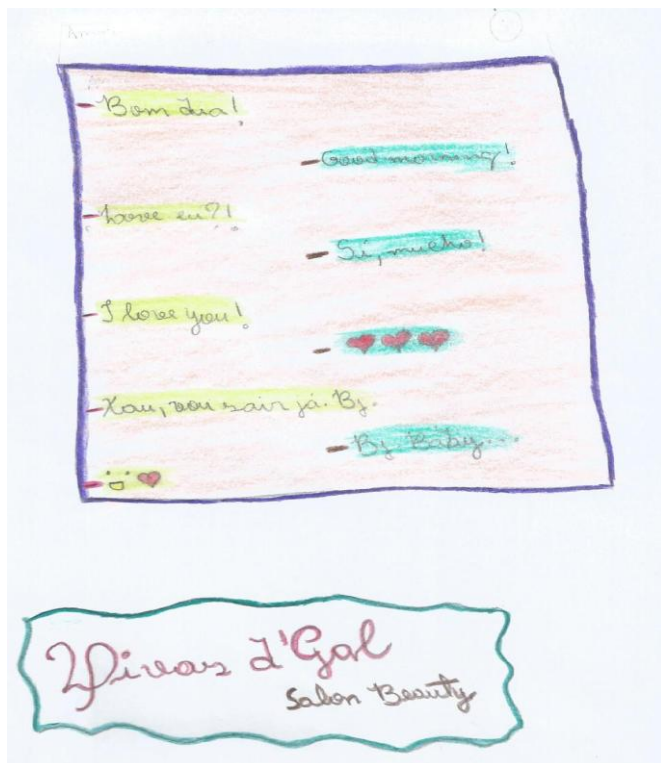 - Bom dia!
- Good morning!
- Love eu?!
- Sí, mucho!
- I love you!
- ♥ ♥ ♥
- Xau, vou sair já. Bj.
- Bj Baby...
d'Gal
Salon Beauty